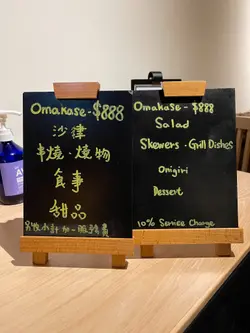 Omakase - $888
沙律
串燒・燒物
食事
甜品
另收小計加一服務費
Omakase - $888
Salad
Skewers・Grill Dishes
Onigiri
Dessert
10% Service Charge